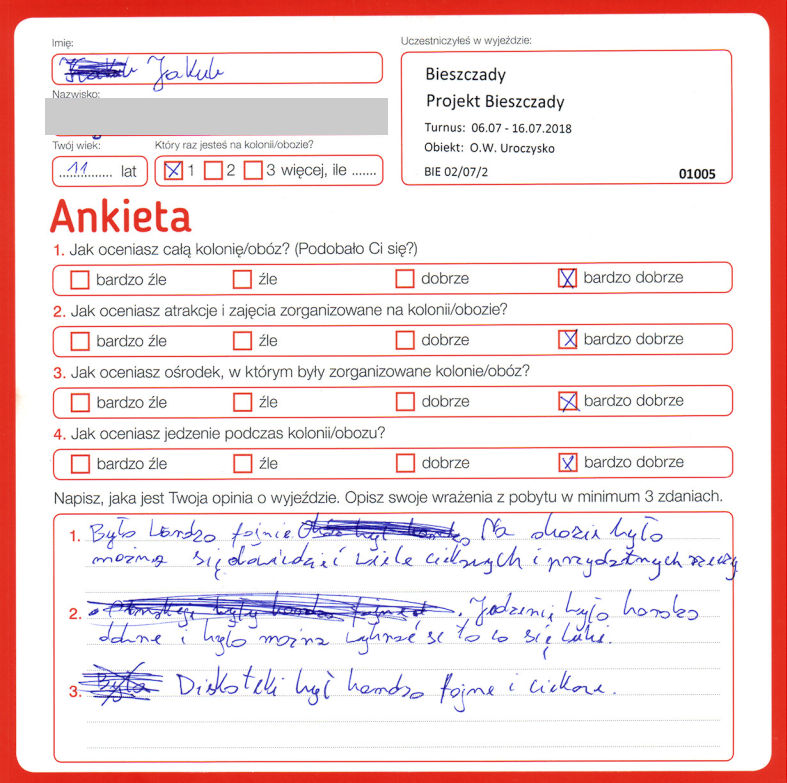 Imię:
Jakub
Nazwisko:
Twój wiek:
11 lat
Który raz jesteś na kolonii/obozie?
1 2 3 więcej, ile .......
Uczestniczyłeś w wyjeździe:
Bieszczady
Projekt Bieszczady
Turnus: 06.07 - 16.07.2018
Obiekt: O.W. Uroczysko
BIE 02/07/2 01005
Ankieta
1. Jak oceniasz całą kolonię/obóz? (Podobało Ci się?)
bardzo źle źle dobrze bardzo dobrze
2. Jak oceniasz atrakcje i zajęcia zorganizowane na kolonii/obozie?
bardzo źle źle dobrze bardzo dobrze
3. Jak oceniasz ośrodek, w którym były zorganizowane kolonie/obóz?
bardzo źle źle dobrze bardzo dobrze
4. Jak oceniasz jedzenie podczas kolonii/obozu?
bardzo źle źle dobrze bardzo dobrze
Napisz, jaka jest Twoja opinia o wyjeździe. Opisz swoje wrażenia z pobytu w minimum 3 zdaniach.
1. Było bardzo fajnie. Na obozie było
można się dowiedzieć wiele ciekawych i przydatnych rzeczy
2. Jedzenie było bardzo
dobre i było można wybrać se to co się lubi.
3. Diskoteki był bardzo fajne i ciekawe.